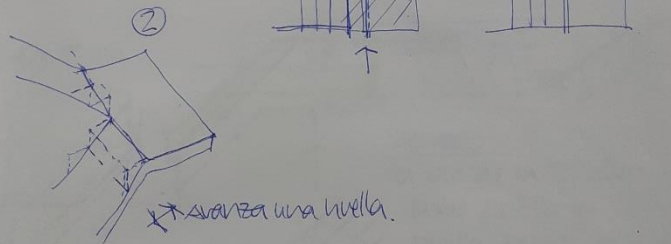 2
avanza una huella.